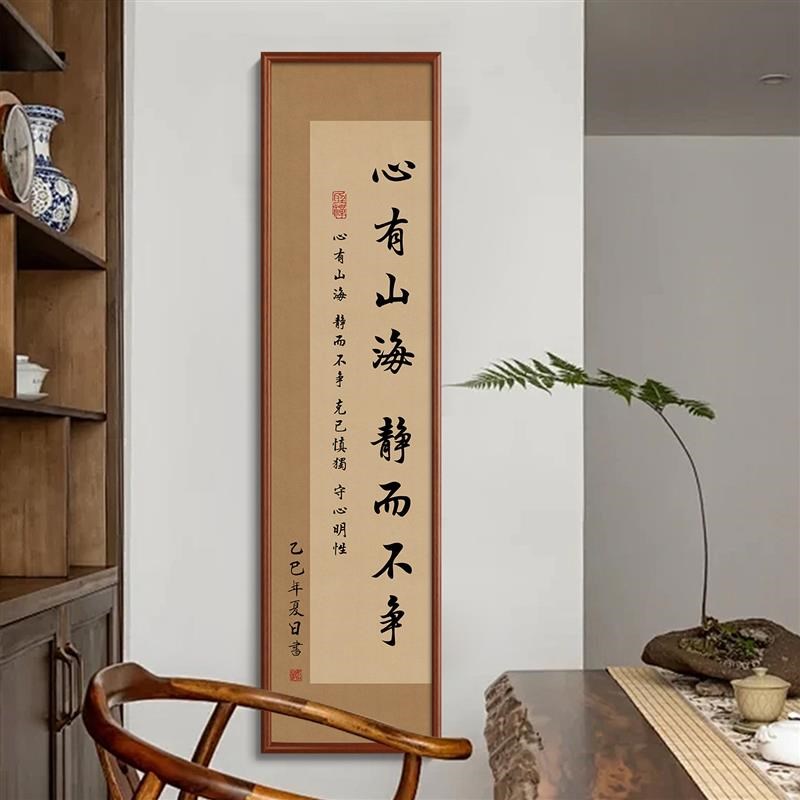 心有山海 静而不争
心有山海 静而不争 克已慎獨 守心明性
乙巳年夏日書